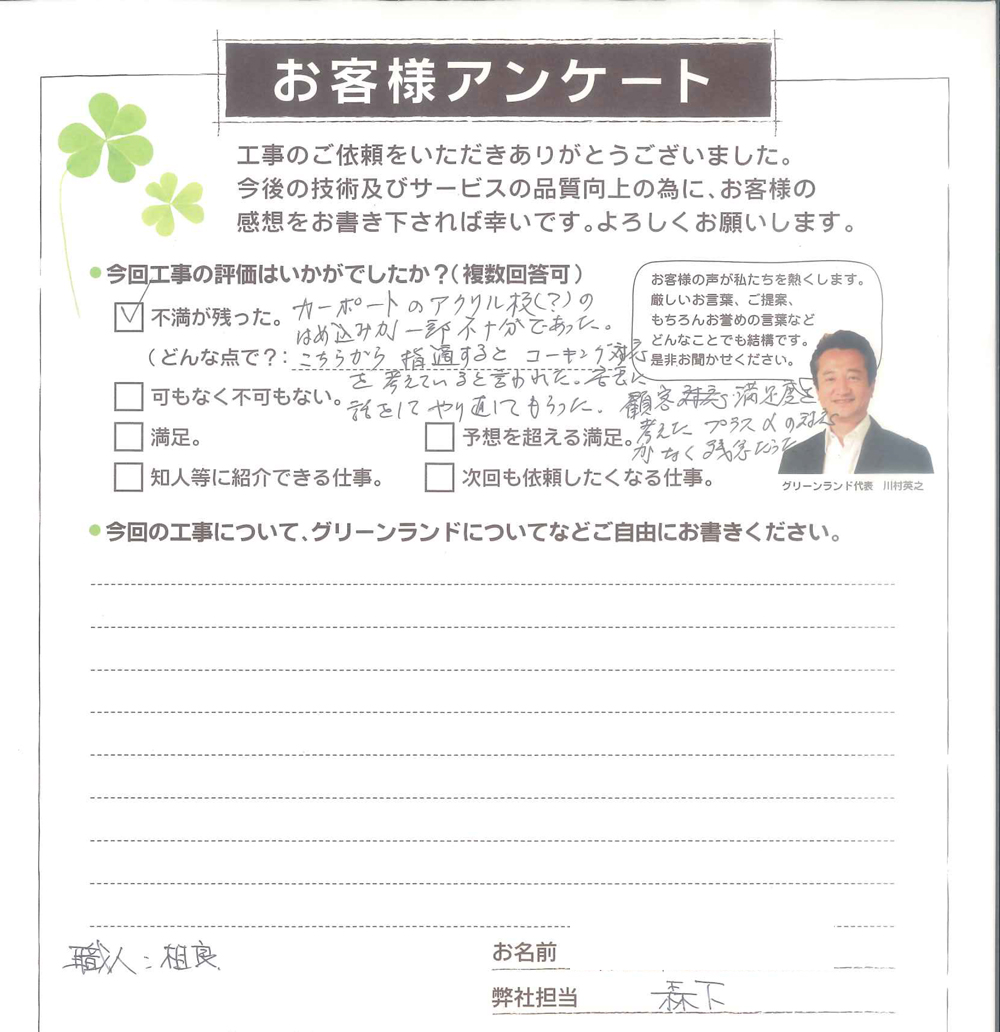 お客様アンケート
工事のご依頼をいただきありがとうございました。
今後の技術及びサービスの品質向上の為に、お客様の
感想をお書き下されば幸いです。よろしくお願いします。
今回工事の評価はいかがでしたか?(複数回答可)
不満が残った。
(どんな点で?:
カーポートのアクリル板(?)の
はめ込みが一部不十分であった。
こちらから指適すると コーキング対応
を考えていると言われた。
話をしてやり直してもらった。 顧客対応・満足度を
考えた プラスαの対応
がなく残念だった
可もなく不可もない。
満足。
予想を超える満足。
知人等に紹介できる仕事。
次回も依頼したくなる仕事。
お客様の声が私たちを熱くします。
厳しいお言葉、ご提案、
もちろんお誉めの言葉など
どんなことでも結構です。
是非お聞かせください。
グリーンランド代表 川村英之
今回の工事について、グリーンランドについてなどご自由にお書きください。
職人:相良
お名前
弊社担当 森下